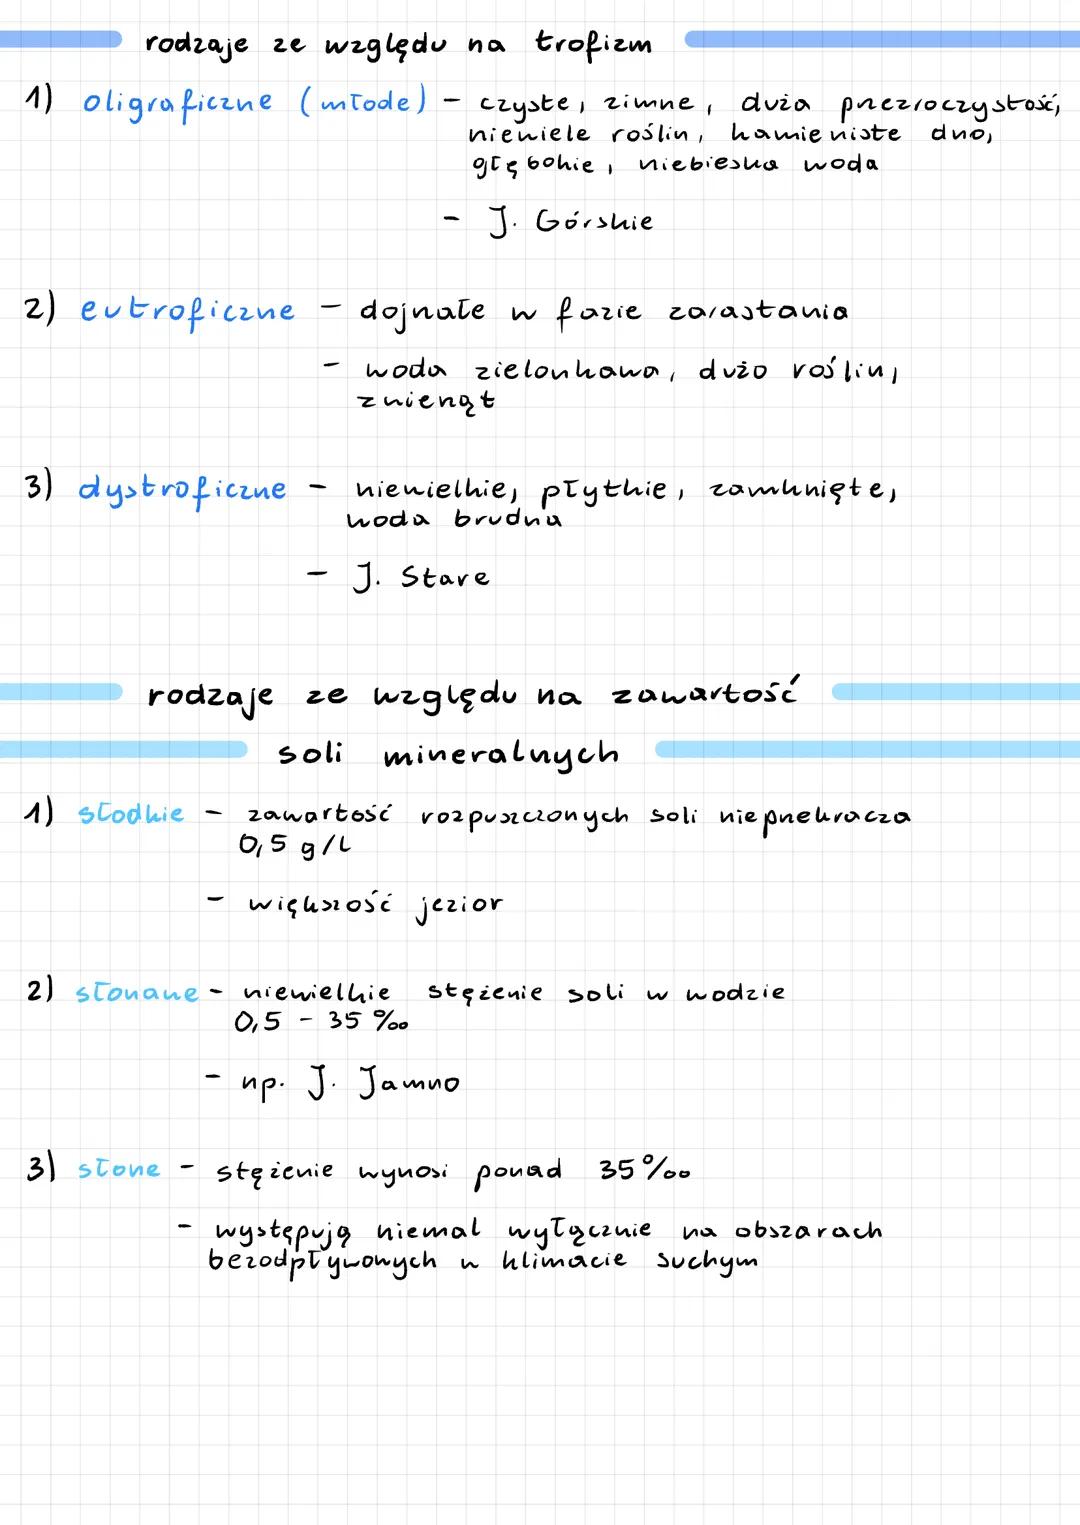 rodzaje ze względu na trofizm
1) oligraficzne (młode) - czyste, zimne, duża przezroczystość,
niewiele roślin, kamieniste dno,
głębokie, niebieska woda
- J. Górskie
2) eutroficzne - dojrzałe w fazie zarastania
- woda zielonkawa, dużo roślin,
zwierząt
3) dystroficzne - niewielkie, płytkie, zamknięte,
woda brudna
- J. Stare
rodzaje ze względu na zawartość
soli mineralnych
1) słodkie - zawartość rozpuszczonych soli nieprzekracza
0,5 g/l
- większość jezior
2) słonawe - niewielkie stężenie soli w wodzie
0,5 - 35 ‰
- np. J. Jamno
3) słone - stężenie wynosi ponad 35‰
- występują niemal wyłącznie na obszarach
bezodpływowych w klimacie suchym